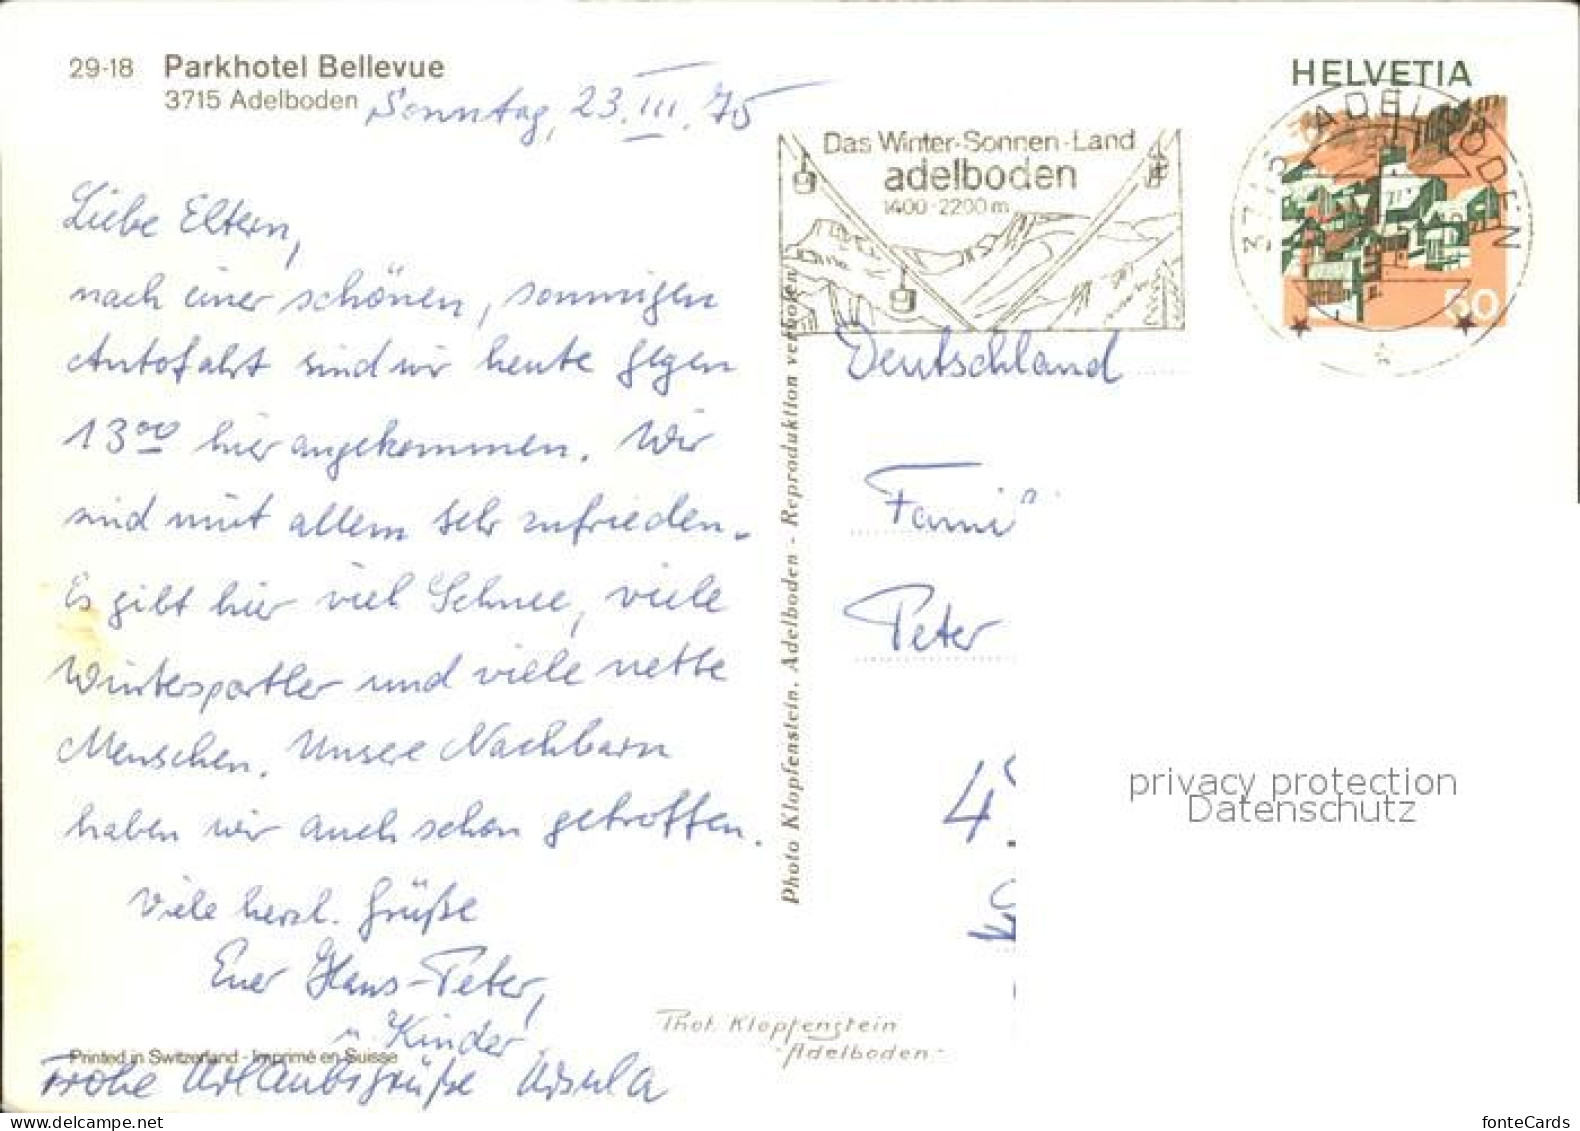 29-18 Parkhotel Bellevue
3715 Adelboden
Sonntag, 23.III.75
Liebe Eltern,
nach einer schönen, sonnigen
Autofahrt sind wir heute gegen
13⁰⁰ hier angekommen. Wir
sind mit allem sehr zufrieden.
Es gibt hier viel Schnee, viele
Wintersportler und viele nette
Menschen. Unsere Nachbarn
haben wir auch schon getroffen.
Viele herzl. Grüße
Euer Hans-Peter,
u. Kinder
Frohe Urlaubsgrüße Ursula
Printed in Switzerland - Imprimé en Suisse
Photo Klopfenstein, Adelboden - Reproduktion verboten
Phot. Klopfenstein
-Adelboden-
Das Winter-Sonnen-Land
adelboden
1400-2200m
HELVETIA
50
3715 ADELBODEN
Deutschland
Fami
Peter
4
privacy protection
Datenschutz
fonteCards